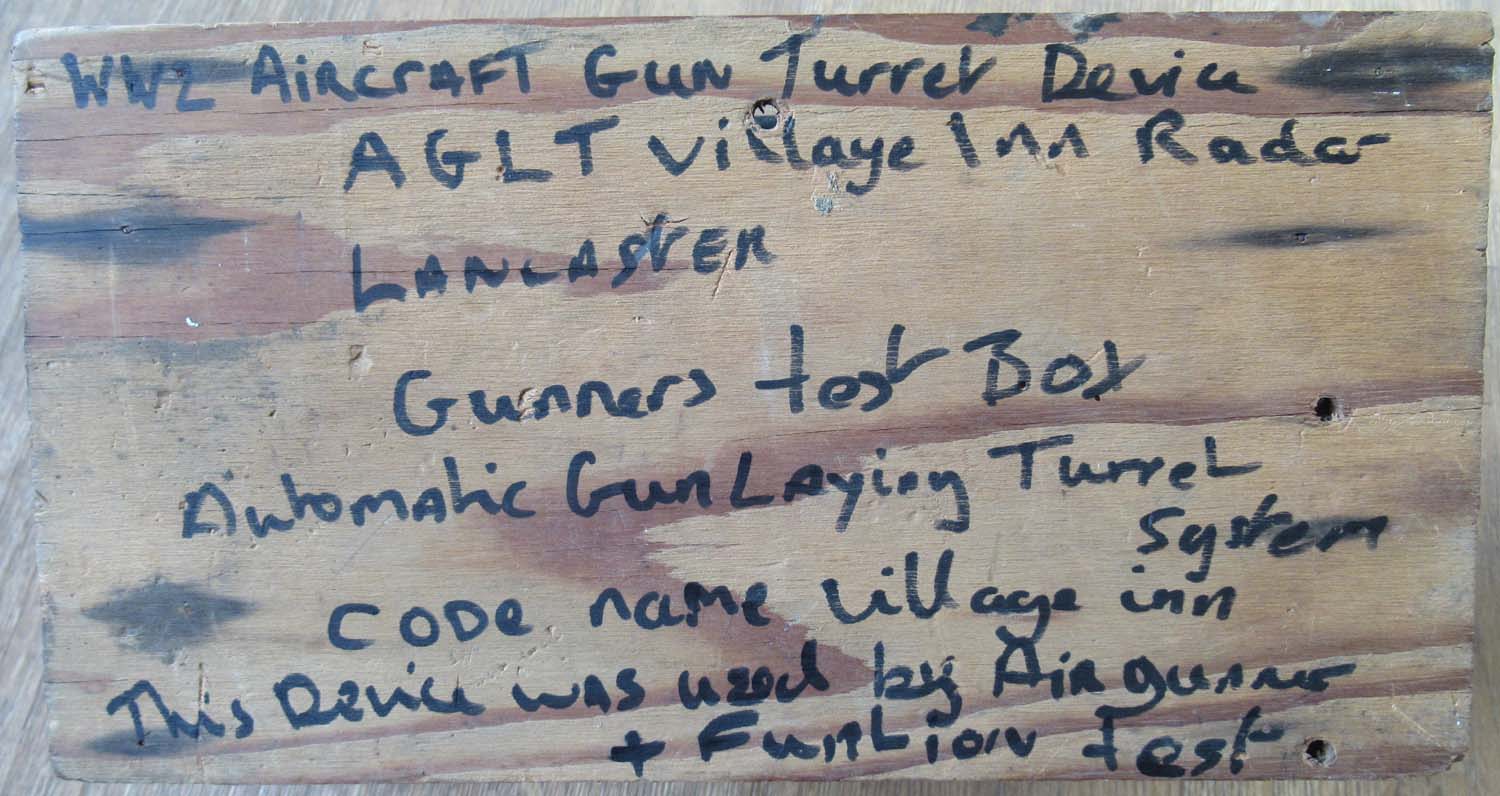 WW2 AIRCRAFT GUN Turret Device
AGLT Village Inn Radar
LANCASTER
Gunners test Box
Automatic Gun Laying Turret
System
CODe name village inn
This Device was used by Air gunner
+ Funtion test